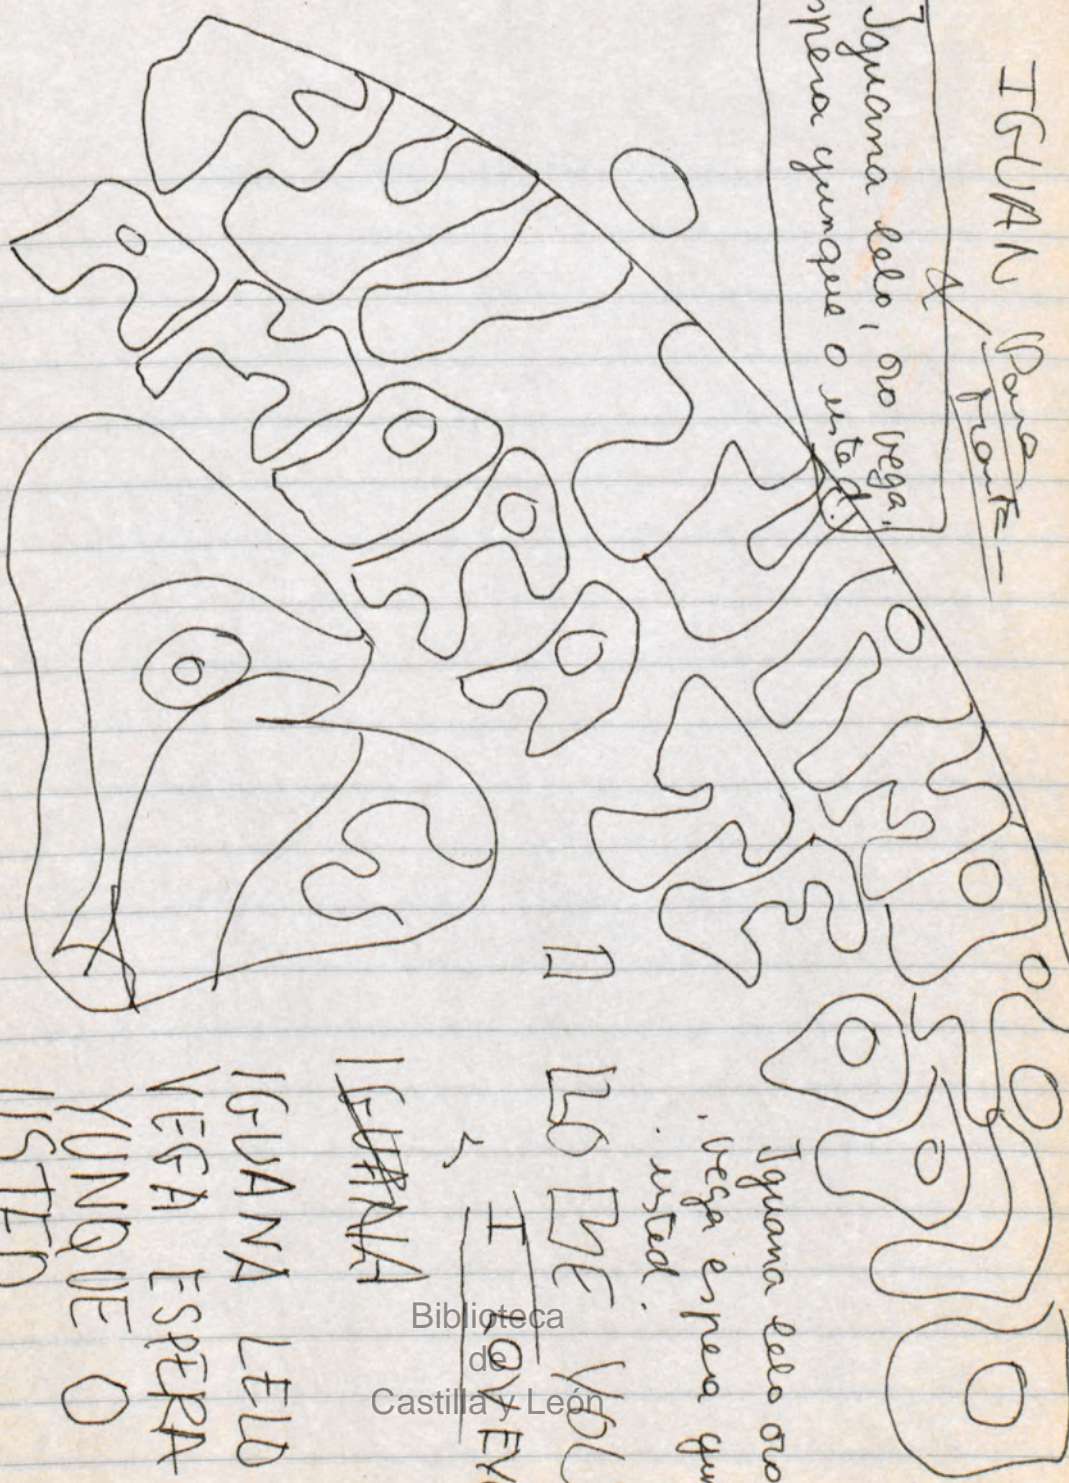 IGUAN
Para
Iguana lelo, oro vega,
spera yunque o usted.
Iguana lelo oro
vega espera yun
usted.
I LOVE Y
IGUANA
IGUANA LELO
VEGA ESPERA
YUNQUE O
USTED
Biblioteca
de
Castilla y León